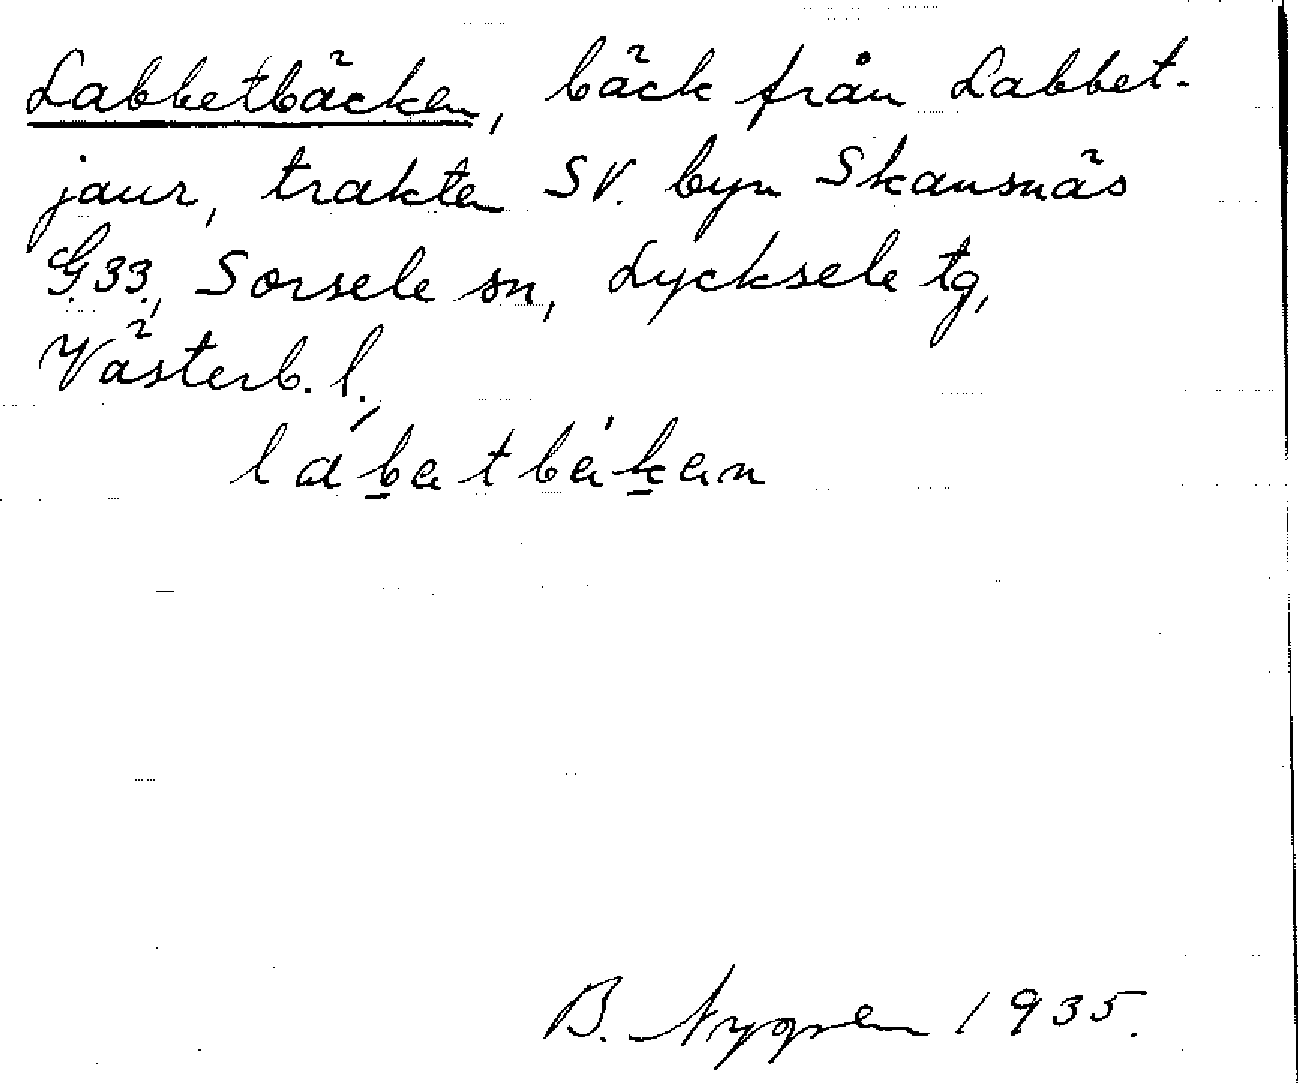 Labbetbäcken, bäck från Labbet-
jaur, trakten SV. byn Skansnäs
G.33., Sorsele sn, Lycksele tg,
Västerb. l.
B. Nygren 1935.